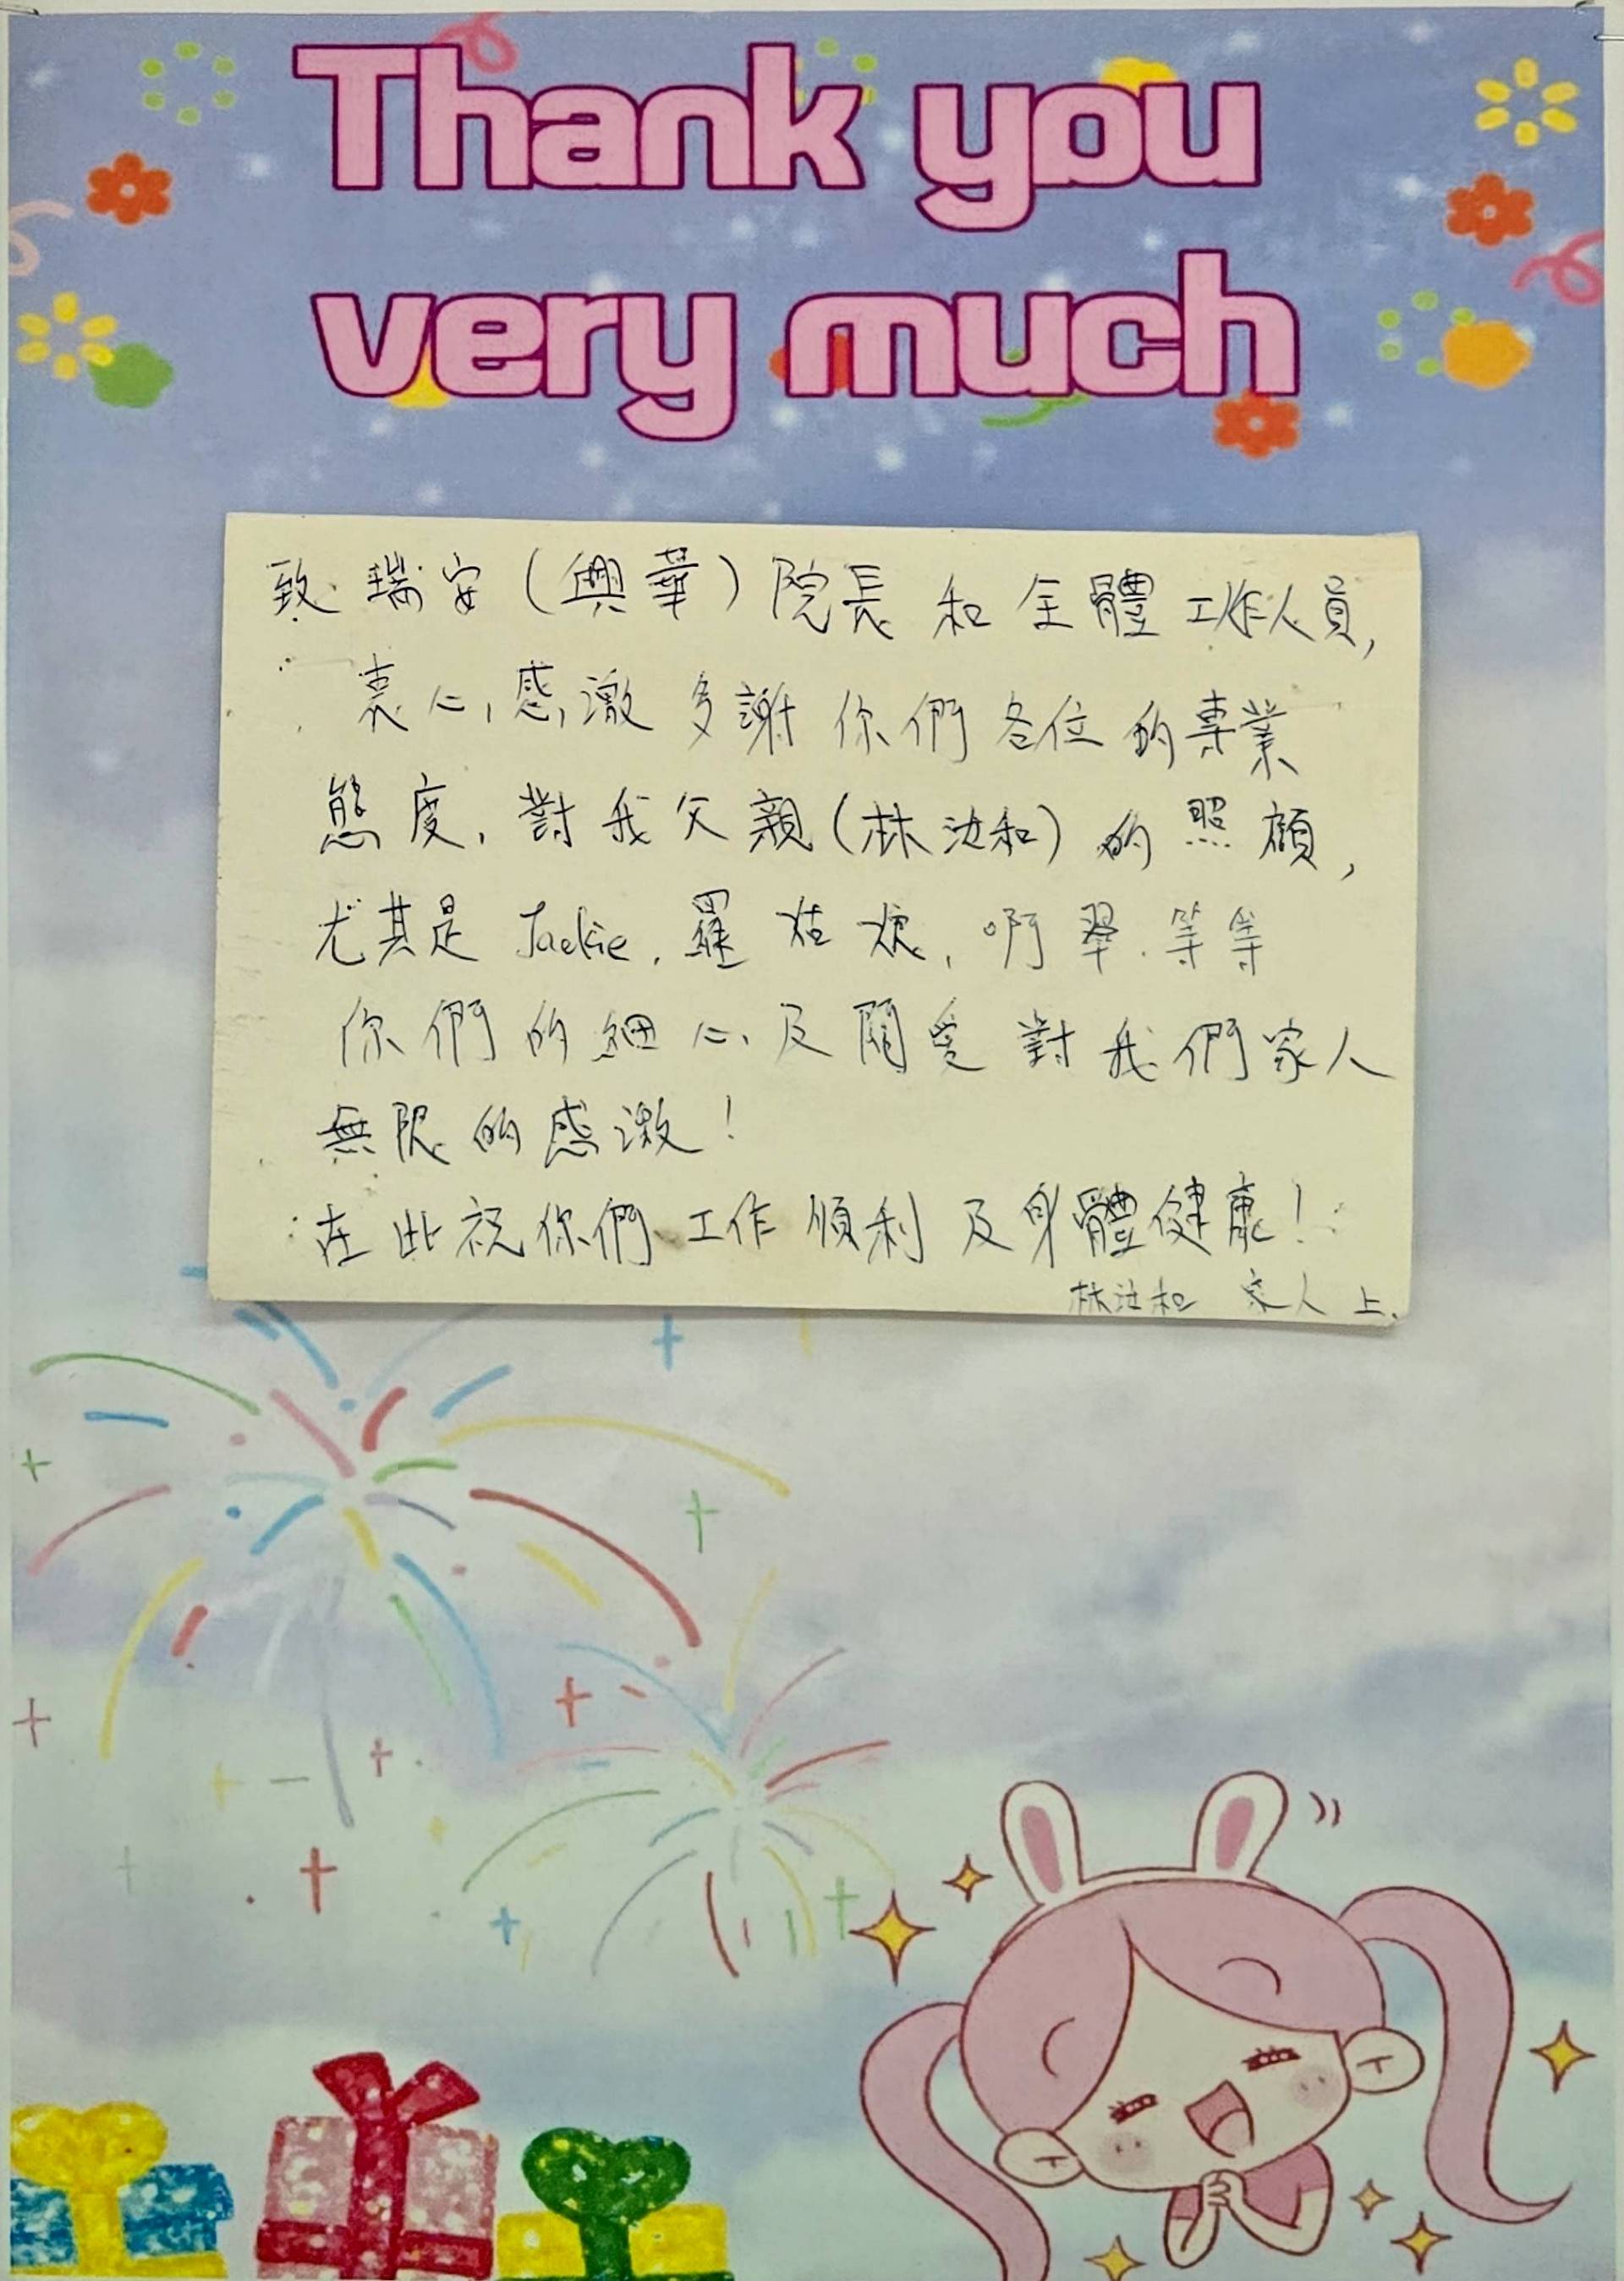 Thank you
very much
致 瑞安（興華）院長 和 全體 工作人員,
衷心感激 多謝 你們 各位 的 專業
態度, 對我父親（林沈和）的 照顧,
尤其是 Jackie, 羅姑娘, 啊翠 等等
你們 的 細心 及 關愛 對 我們家人
無限 的 感激！
在此祝你們 工作 順利 及身體健康！
林沈和 家人 上.